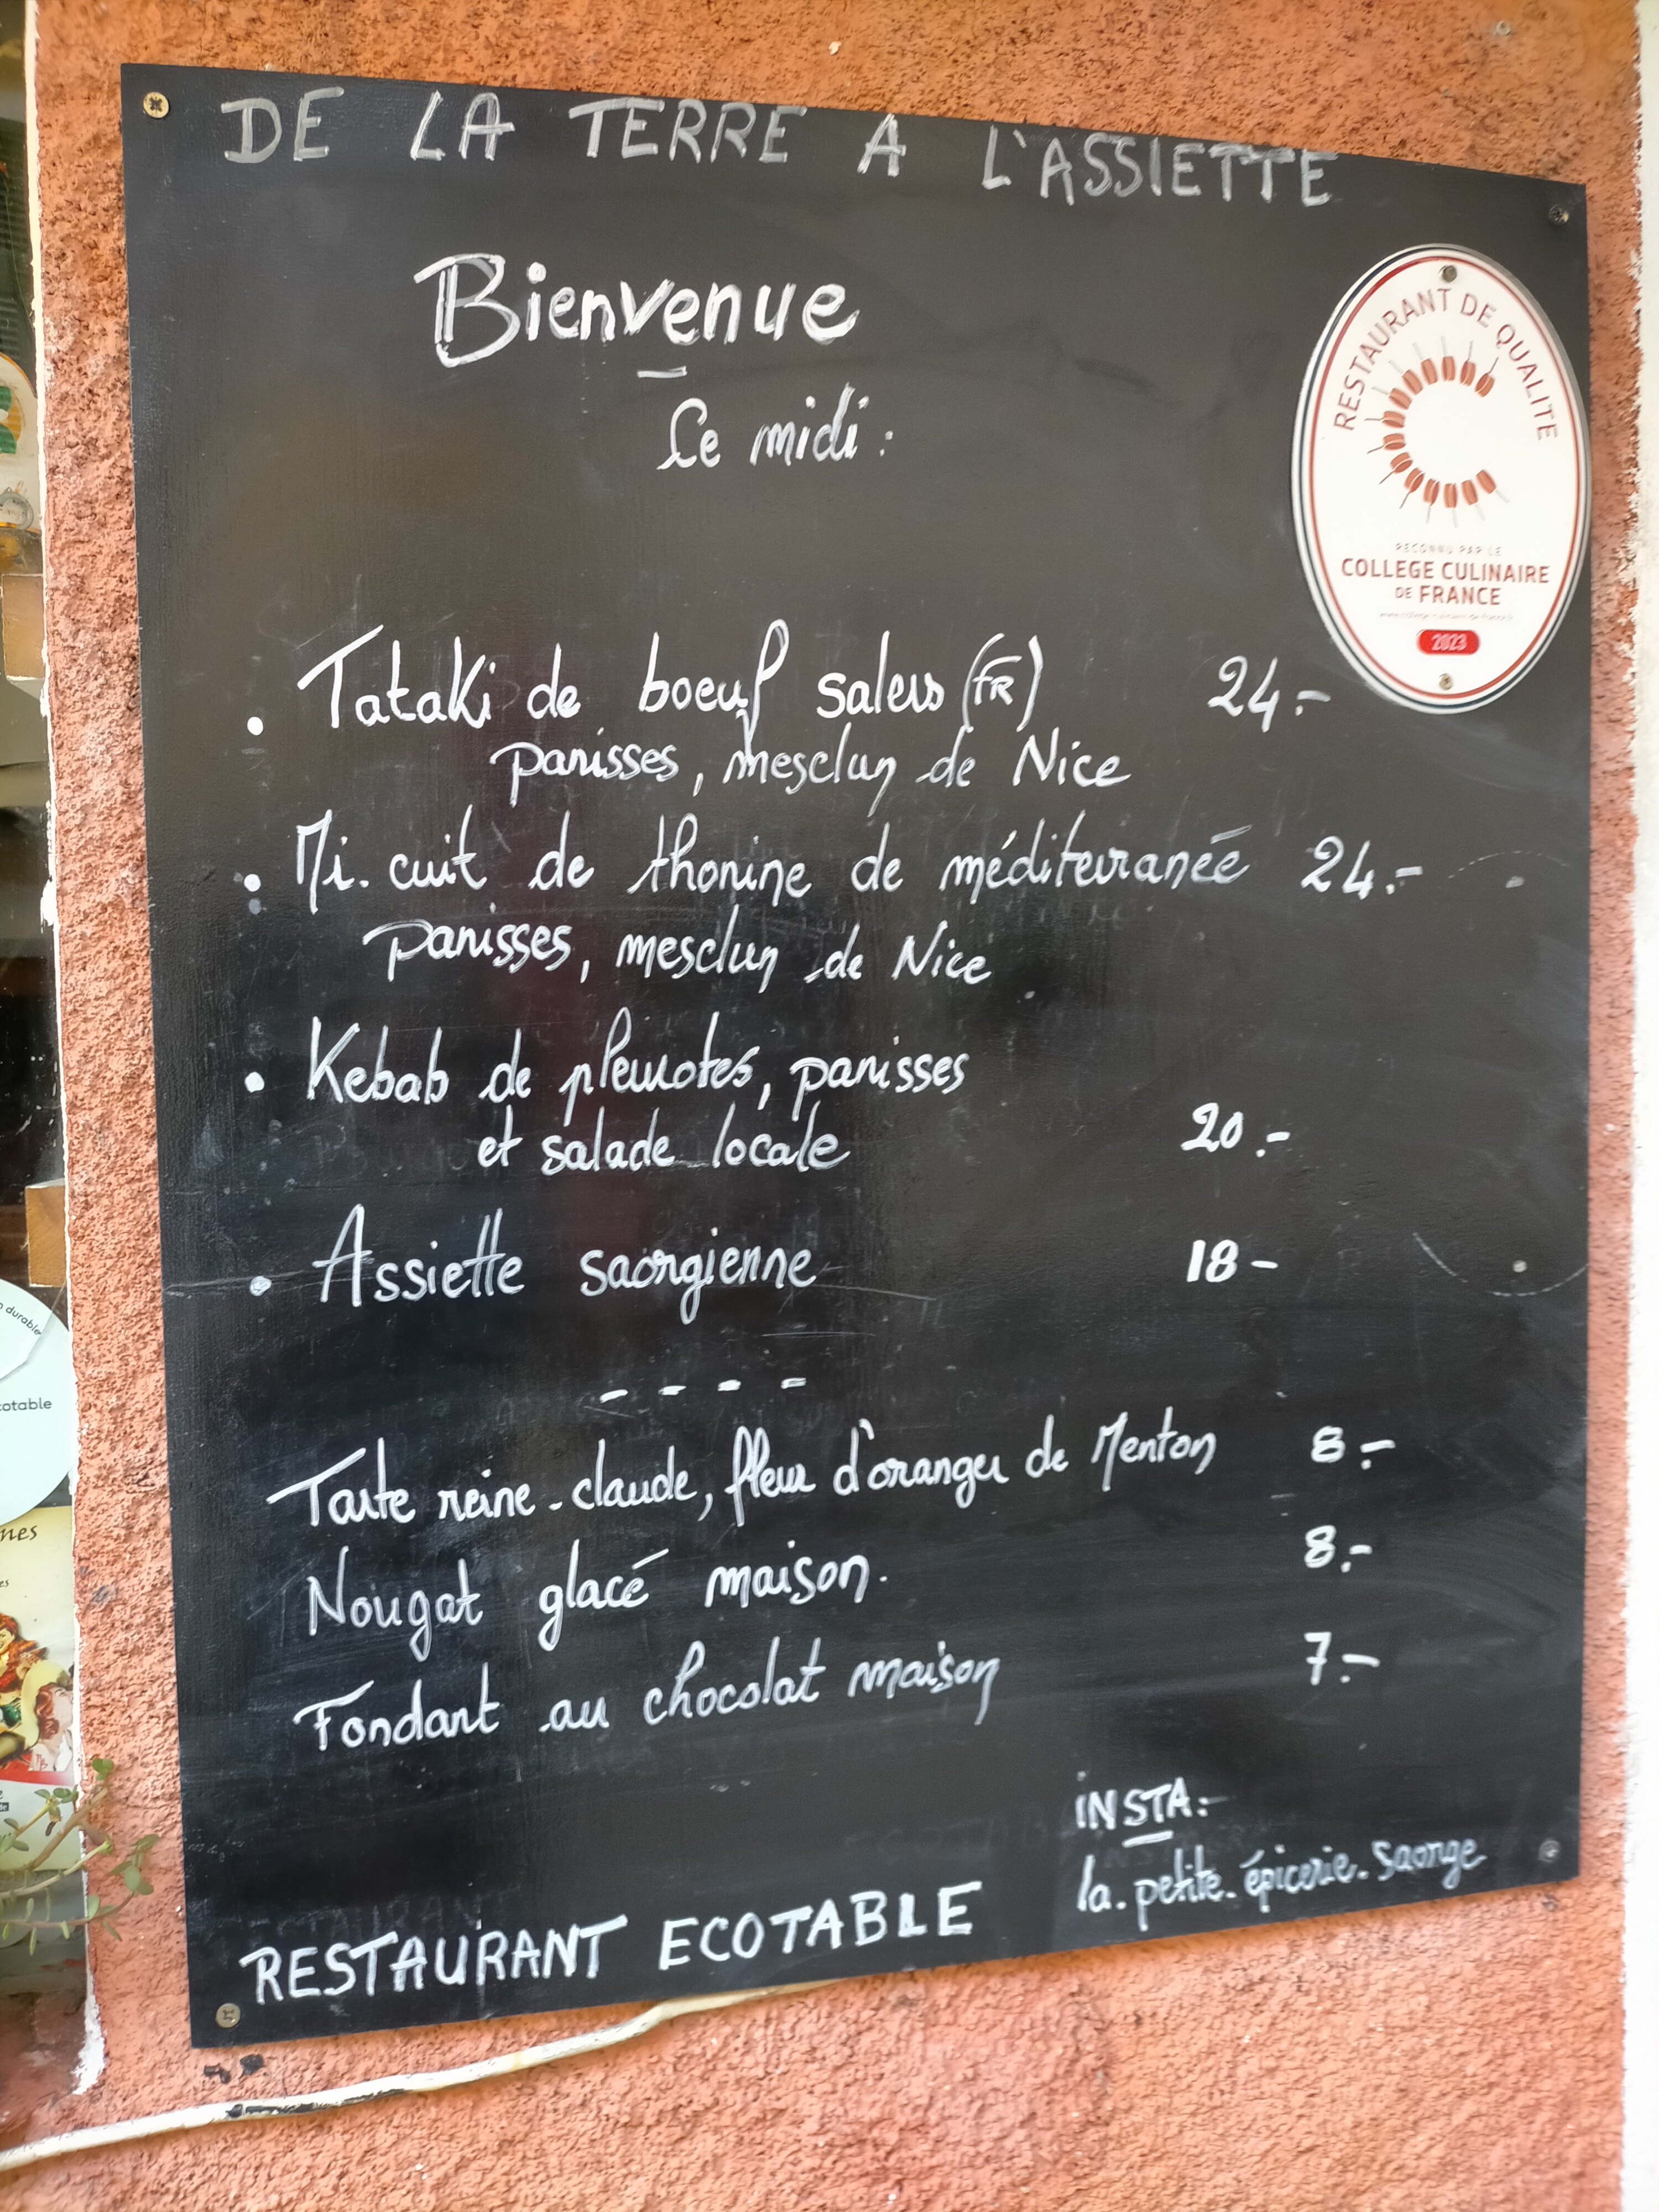 DE LA TERRE A L'ASSIETTE
Bienvenue
Ce midi :
RESTAURANT DE QUALITE
RECONNU PAR LE
COLLEGE CULINAIRE
DE FRANCE
2023
• Tataki de boeuf salers (FR) 24.-
panisses, mesclun de Nice
• Mi-cuit de thonine de méditerranée 24.-
panisses, mesclun de Nice
• Kebab de pleurotes, panisses
et salade locale 20.-
• Assiette saorgienne 18-
- - - -
Tarte reine-claude, fleur d'oranger de Menton 8.-
Nougat glacé maison. 8.-
Fondant au chocolat maison 7.-
INSTA:-
la.petite.épicerie.saorge
RESTAURANT ECOTABLE
durable
cotable
nes